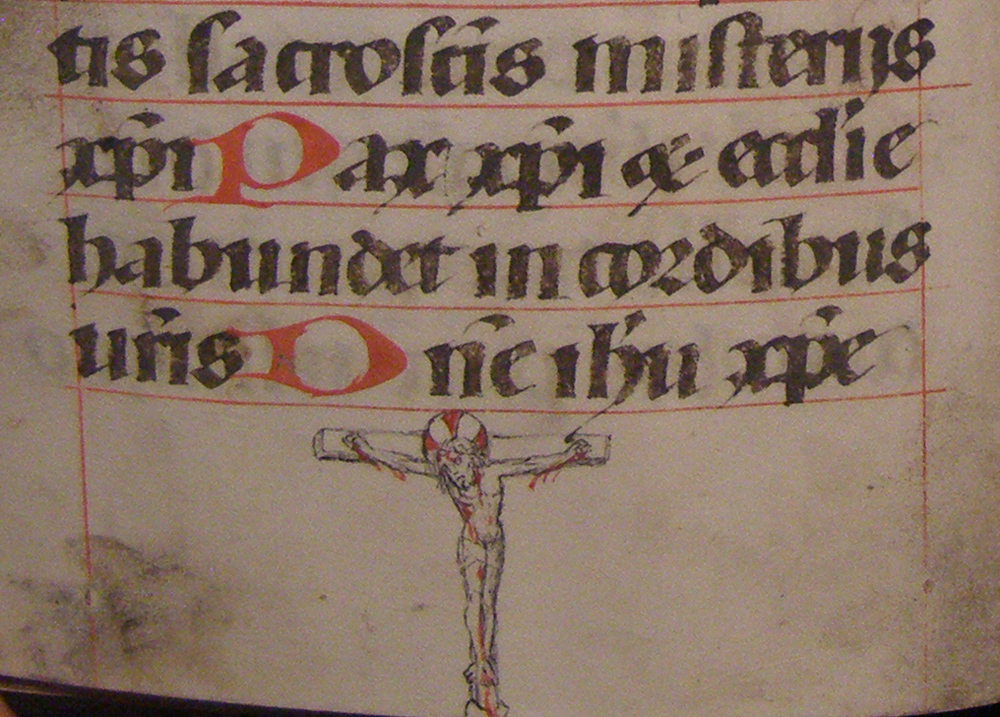 tis sacroscis misterijs
xp̄i Pax xp̄i et ecclie
habundet in cordibus
ur̄is Dn̄e ihu xp̄e